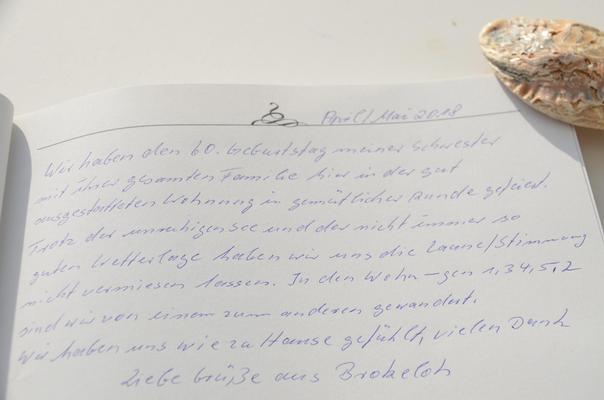 April/Mai 2018
Wir haben den 60. Geburtstag meiner Schwester
mit ihrer gesamten Familie hier in der gut
ausgestatteten Wohnung in gemütlicher Runde gefeiert.
Trotz der unruhigen See und der nicht immer so
guten Wetterlage haben wir uns die Laune/Stimmung
nicht vermiesen lassen. In den Wohn-gen 1,34,5,2
sind wir von einem zum anderen gewandert.
Wir haben uns wie zu Hause gefühlt, vielen Dank
Liebe Grüße aus Brokeloh